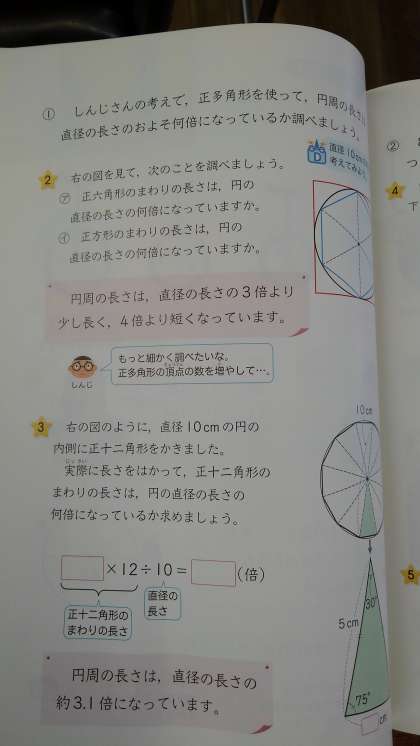 ① しんじさんの考えで，正多角形を使って，円周の長さは
直径の長さのおよそ何倍になっているか調べましょう。
D 直径10cmの
考えてみよう。
2 右の図を見て，次のことを調べましょう。
㋐ 正六角形のまわりの長さは，円の
直径の長さの何倍になっていますか。
㋑ 正方形のまわりの長さは，円の
直径の長さの何倍になっていますか。
円周の長さは，直径の長さの3倍より
少し長く，4倍より短くなっています。
もっと細かく調べたいな。
正多角形の頂点の数を増やして…。
しんじ
3 右の図のように，直径10cmの円の
内側に正十二角形をかきました。
実際に長さをはかって，正十二角形の
まわりの長さは，円の直径の長さの
何倍になっているか求めましょう。
10cm
×12÷10＝ (倍)
正十二角形の
まわりの長さ
直径の
長さ
30°
5cm
75°
cm
円周の長さは，直径の長さの
約3.1倍になっています。
②
つ
4
下
5